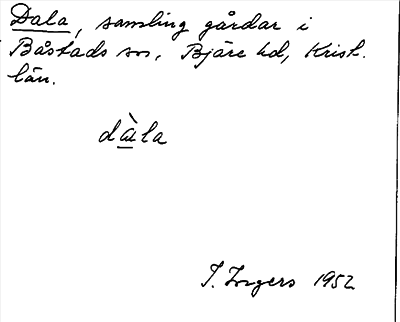 Dala, samling gårdar i
Båstads sn, Bjäre hd, Krist.
län.
dàla
I. Ingers 1952